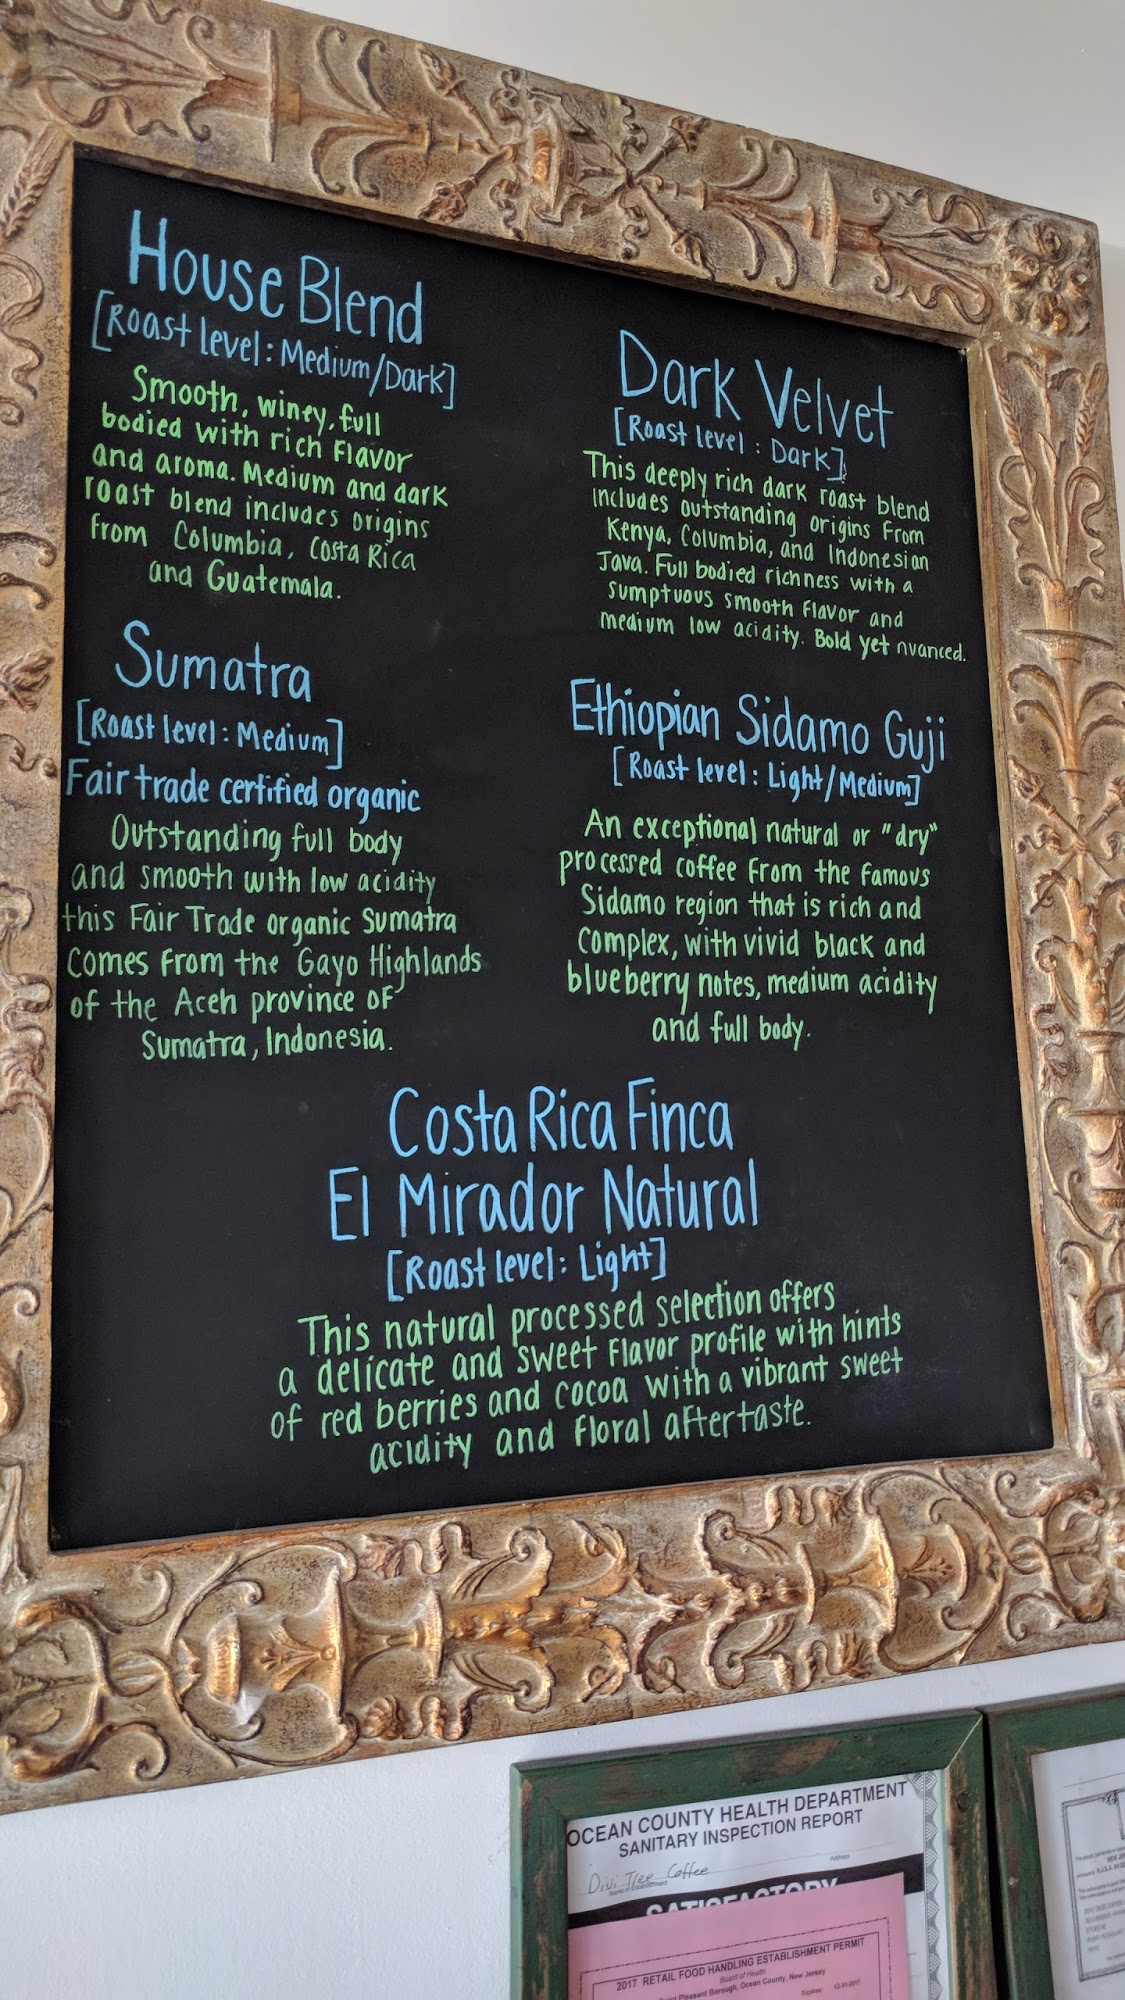 House Blend
[Roast level: Medium/Dark]
Smooth, winey, full
bodied with rich flavor
and aroma. Medium and dark
roast blend includes origins
from Columbia, Costa Rica
and Guatemala.
Dark Velvet
[Roast level: Dark]
This deeply rich dark roast blend
includes outstanding origins from
Kenya, Columbia, and Indonesian
Java. Full bodied richness with a
sumptuous smooth flavor and
medium low acidity. Bold yet nuanced.
Sumatra
[Roast level: Medium]
Fair trade certified organic
Outstanding full body
and smooth with low acidity
this Fair Trade organic Sumatra
comes from the Gayo Highlands
of the Aceh province of
Sumatra, Indonesia.
Ethiopian Sidamo Guji
[Roast level: Light/Medium]
An exceptional natural or "dry"
processed coffee from the famous
Sidamo region that is rich and
complex, with vivid black and
blueberry notes, medium acidity
and full body.
Costa Rica Finca
El Mirador Natural
[Roast level: Light]
This natural processed selection offers
a delicate and sweet flavor profile with hints
of red berries and cocoa with a vibrant sweet
acidity and floral aftertaste.
OCEAN COUNTY HEALTH DEPARTMENT
SANITARY INSPECTION REPORT
Divi Tree Coffee
Name of Establishment
Address
SATISFACTORY
2017 RETAIL FOOD HANDLING ESTABLISHMENT PERMIT
Board of Health
Point Pleasant Borough, Ocean County, New Jersey
Expires: 12-31-2017